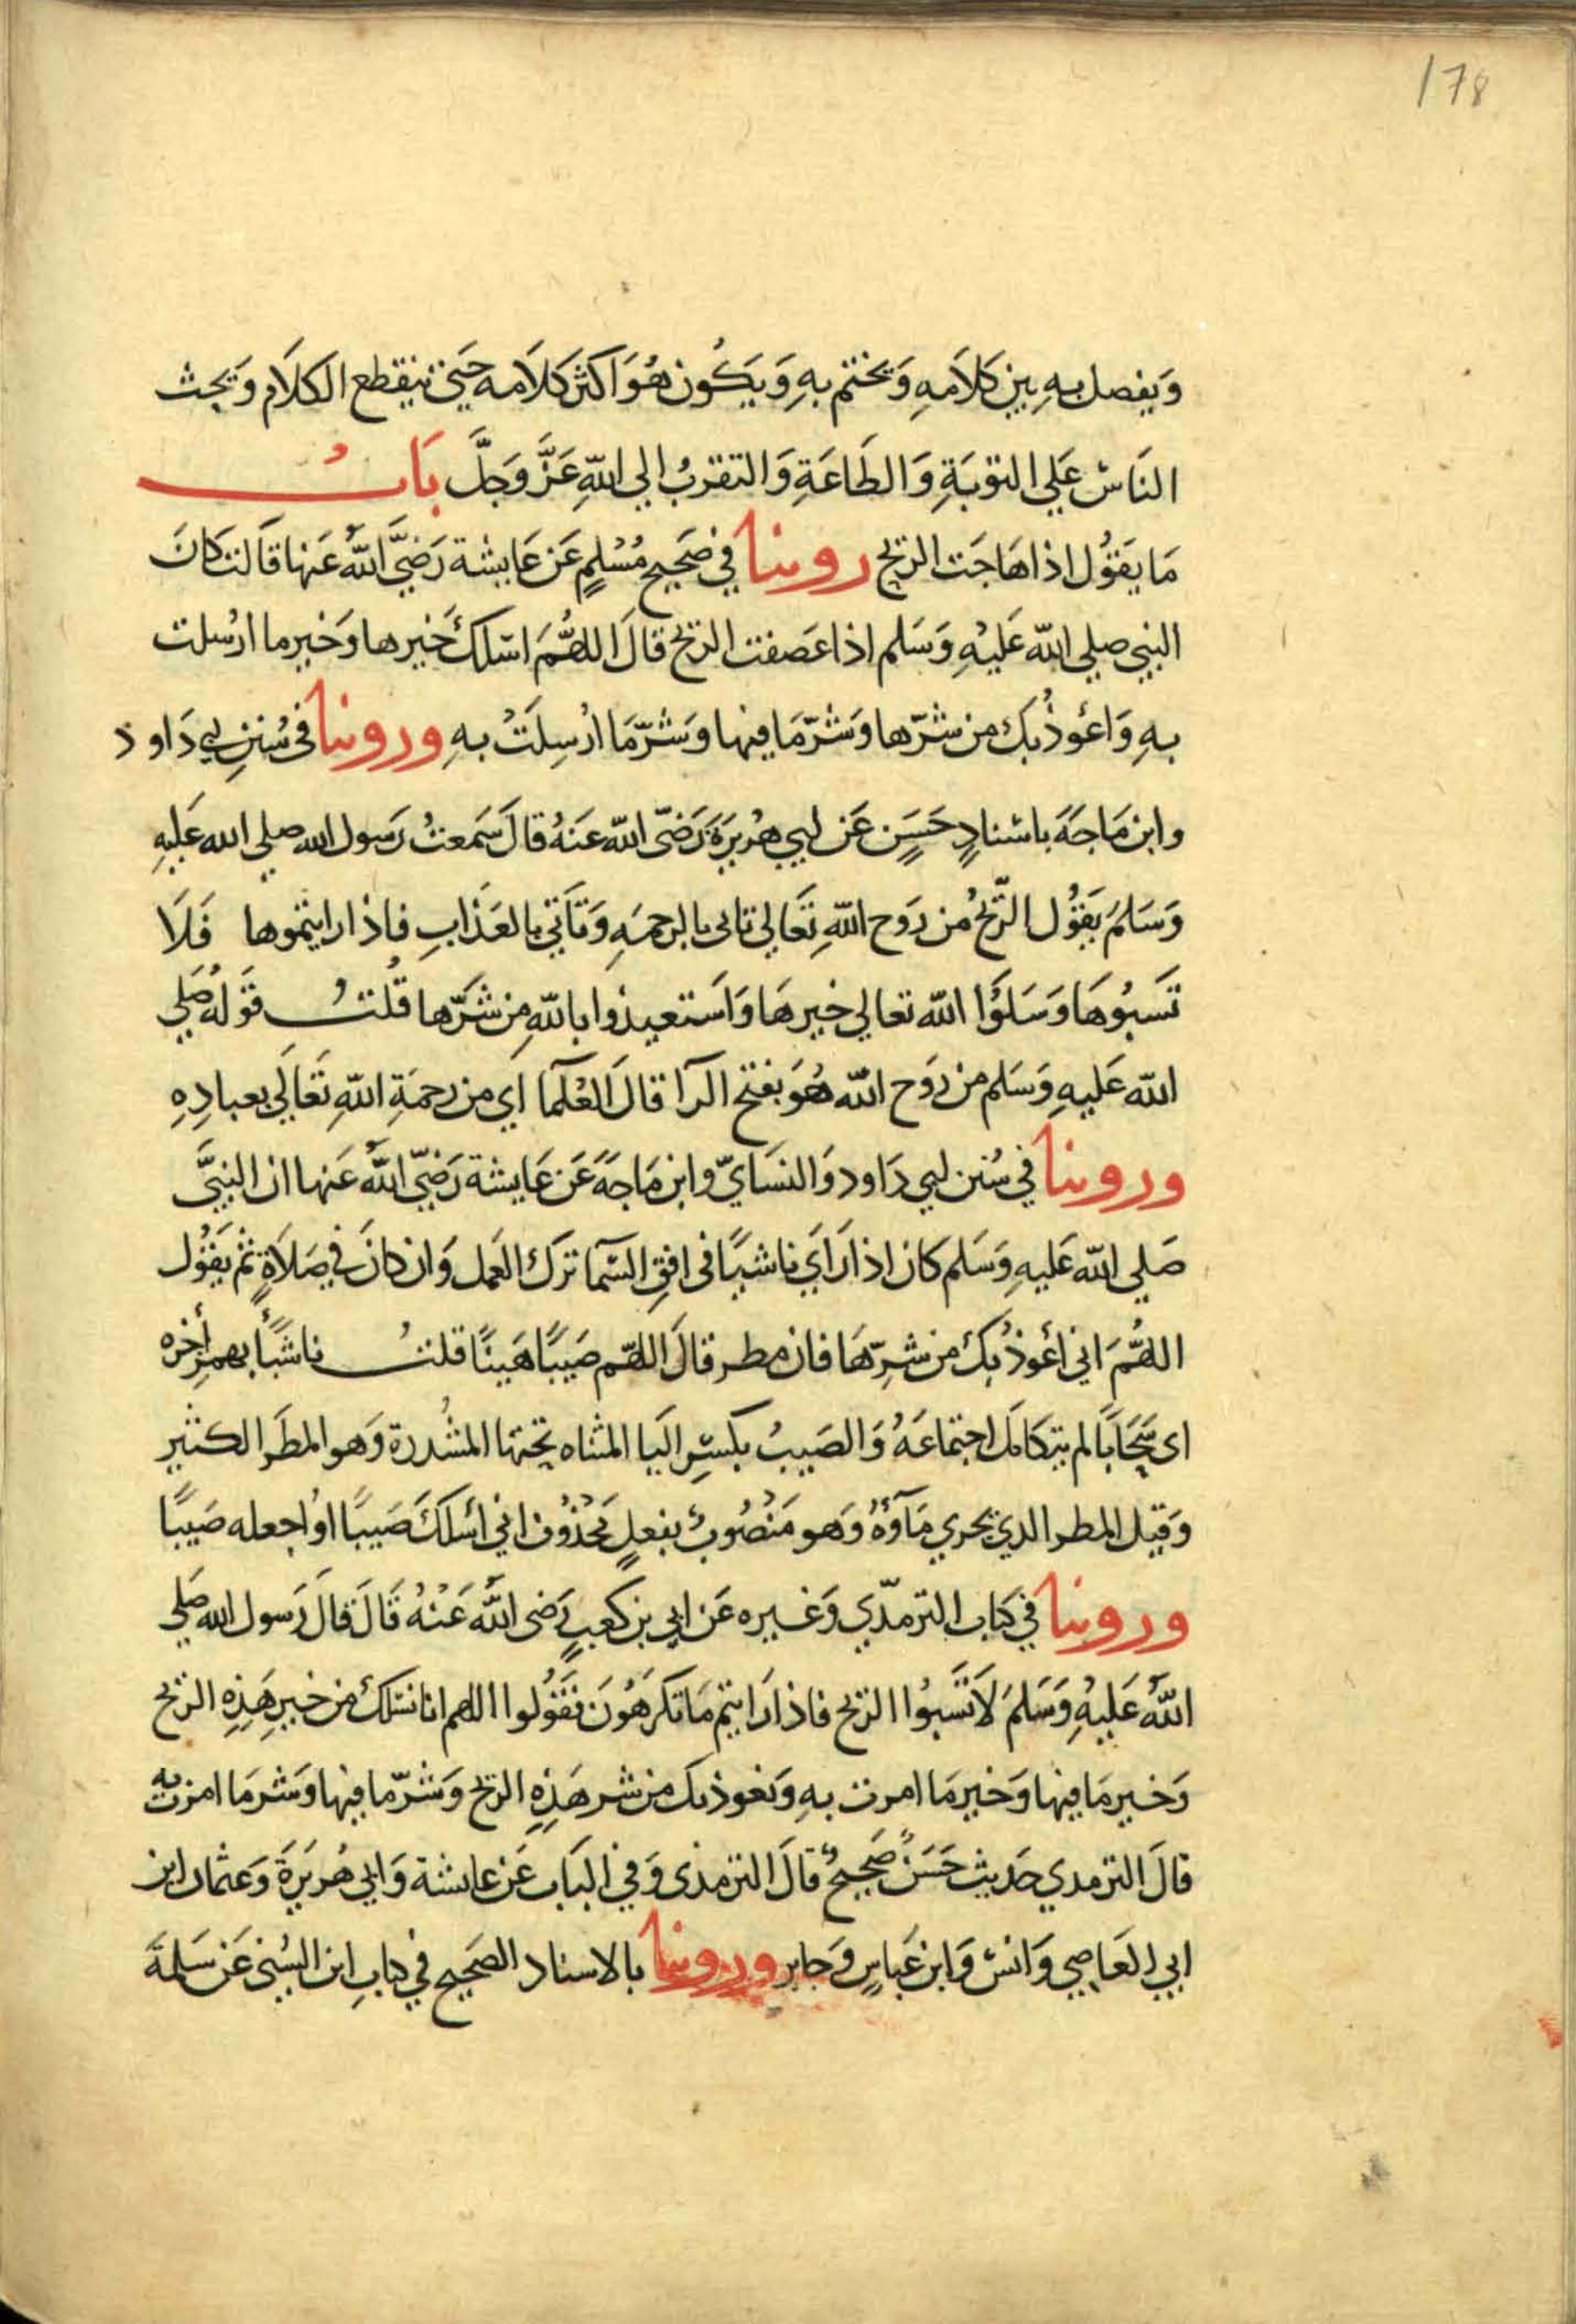 178
وَيفصل بهِ بين كَلَامهِ وَيختم بهِ وَيَكُون هُوَ اكثر كَلَامه حَتي ينقطع الكلَام وَيحث
النَاسَ عَلي التوبَةِ وَالطَاعَةِ وَالتقربُ الي اللّهِ عَزَّ وَجَلَّ بَابُ
مَا يَقوُل اذا هَاجَت الريح روينا في صَحيح مُسْلمٍ عَن عَايشة رَضيَّ اللّهُ عَنها قَالت كَانَ
النبي صلي اللّه عَليْهِ وَسَلم اذا عَصفت الريح قالَ اللهُمَّ اسٔلكَ خَيرها وَخير ما ارْسلت
بهِ وَاعُوذُ بكَ من شرّها وَشرّ مَا فيها وَشرّ مَا ارْسِلَتْ بهِ وروينا في سُننِ ابي دَاود
وابن مَاجَةَ باسْنادٍ حَسَنٍ عَن ابي هُريرَةَ رَضيّ اللّه عَنهُ قالَ سَمعتُ رَسول الله صلي الله عَليهِ
وَسَلمَ يَقوُل الرّيحُ من رَوح اللّهِ تَعَالي تاتي بالرحمَهِ وَتَأتي بالعَذابِ فاذا رايتموها فَلَا
تَسبُوهَا وَسَلوُا اللّه تعالي خيرهَا وَاستعيذوا باللّهِ من شرّها قُلتُ قوَلهُ صَلي
اللّه عَليهِ وَسَلم من رَوح اللّه هُوَ بفتح الرآ قالَ العُلمآ اي من رحمَةِ اللّهِ تَعَالَي بعبادِهِ
وروينا في سُنن ابي دَاود وَالنسَايّ وابن مَاجَةَ عَن عَايشة رَضيّ اللّهُ عَنها ان النبيَّ
صَلي اللّه عَليهِ وَسَلم كان اذا رَايَ ناشيًا في افقِ السّمآ تَرَك العَمل وَان كانَ في صَلَاةٍ ثم يَقوُل
اللهُمَّ اني أعُوذُ بكَ من شرِّهَا فان مطر قالَ اللهم صَيبًا هَينًا قلتُ ناشئًا بهمز أخره
اي سَحَابًا لم يتكَامَل اجتماعَهُ وَالصَيبُ بكسْرِ اليَا المثناه تحتها المشْددة وَهو المطَر الكثير
وَقيل المطر الذي يجري مَآوُهُ وَهو مَنْصُوبٌ بفعلٍ مَحْذوُف اني اسٔلكَ صَيبًا اوُ اجعله صَيبًا
وروينا في كتاب الترمذّي وَغيره عَن ابي بن كعبٍ رَضى اللّهُ عَنْهُ قَالَ قالَ رَسول الله صَلي
اللّهُ عَليْهِ وَسَلمَ لَا تَسَبوُا الريح فاذا رَايتم مَا تكرَهُونَ فقَوُلوا اللهم انا نسٔلكَ من خير هَذِهِ الريح
وَخير مَا فيها وَخير مَا امرت بهِ وَنعوذ بك من شر هَذِهِ الريح وَشرّ ما فيها وَشر مَا امرت به
قالَ الترمدي حَديث حَسَنٌ صَحيحٌ قالَ الترمذى وَفي البَاب عَن عايشة وَابي هُريرَةَ وَعثمان ابن
ابي العَاصي وَانسْ وَابن عَباسٍ وَجابر وروينا بالاسناد الصَحيح في كتابِ ابن السُني عَن سَلمة